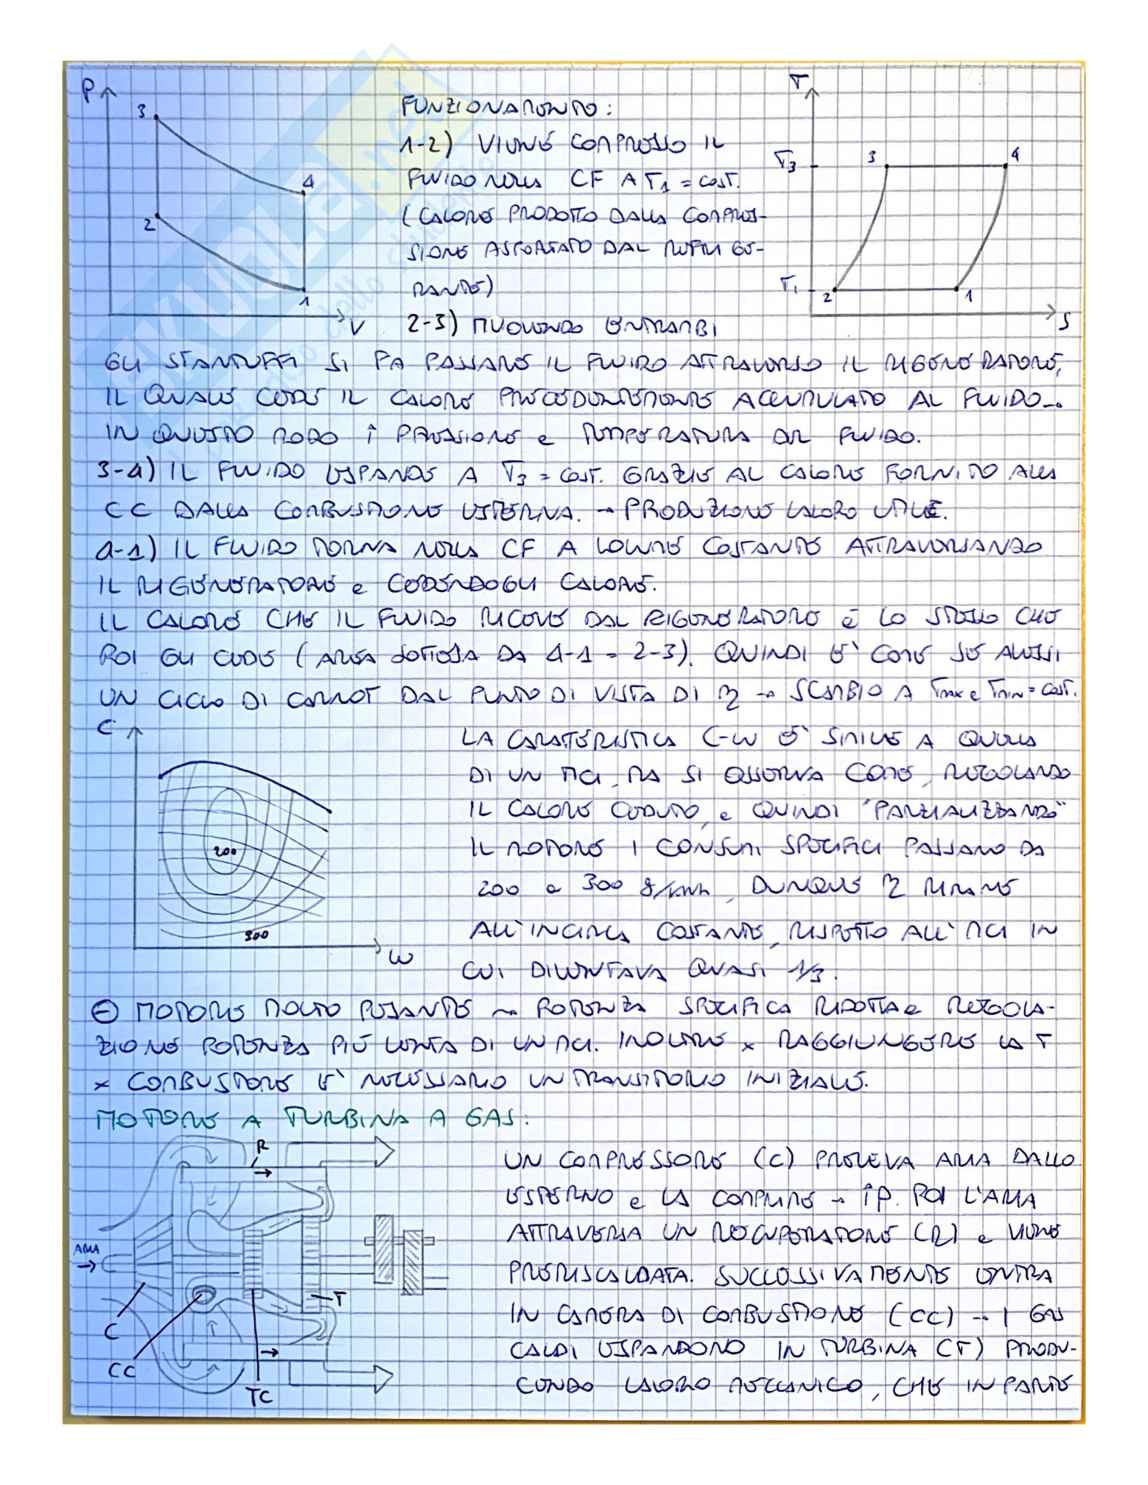 P
3
4
2
1
V
FUNZIONAMENTO:
1-2) VIENE COMPRESSO IL
FLUIDO NELLA CF A T1 = COST.
(CALORE PRODOTTO DALLA COMPRES-
SIONE ASPORTATO DAL REFRIGE-
RANTE)
2-3) MUOVENDO ENTRAMBI
T
T3
3
4
T1
2
1
S
GLI STANTUFFI SI FA PASSARE IL FLUIDO ATTRAVERSO IL RIGENERATORE,
IL QUALE CEDE IL CALORE PRECEDENTEMENTE ACCUMULATO AL FLUIDO...
IN QUESTO MODO ↑ PRESSIONE e TEMPERATURA DEL FLUIDO.
3-4) IL FLUIDO ESPANDE A T3 = COST. GRAZIE AL CALORE FORNITO ALLA
CC DALLA COMBUSTIONE ESTERNA. → PRODUZIONE LAVORO UTILE.
4-1) IL FLUIDO TORNA NELLA CF A VOLUME COSTANTE ATTRAVERSANDO
IL RIGENERATORE e CEDENDOGLI CALORE.
IL CALORE CHE IL FLUIDO RICEVE DAL RIGENERATORE È LO STESSO CHE
POI GLI CEDE (AREA SOTTESA DA 4-1 = 2-3). QUINDI È COME SE AVESSI
UN CICLO DI CARNOT DAL PUNTO DI VISTA DI η → SCAMBIO A Tmax e Tmin = COST.
C
200
300
ω
LA CARATTERISTICA C-ω È SIMILE A QUELLA
DI UN MCI, MA SI OSSERVA COME, REGOLANDO
IL CALORE CEDUTO, e QUINDI "PARZIALIZZANDO"
IL MOTORE I CONSUMI SPECIFICI PASSANO DA
200 a 300 g/kWh, DUNQUE η RIMANE
ALL'INCIRCA COSTANTE, RISPETTO ALL'MCI IN
CUI DIVENTAVA QUASI 1/3.
⊖ MOTORE MOLTO PESANTE → POTENZA SPECIFICA RIDOTTA e REGOLA-
ZIONE POTENZA PIÙ LENTA DI UN MCI. INOLTRE x RAGGIUNGERE LA T
x COMBUSTIONE È NECESSARIO UN TRANSITORIO INIZIALE.
MOTORE A TURBINA A GAS:
R
ARIA
C
CC
TC
T
UN COMPRESSORE (C) PRELEVA ARIA DALLO
ESTERNO e LA COMPRIME → ↑P. POI L'ARIA
ATTRAVERSA UN RECUPERATORE (R) e VIENE
PRERISCALDATA. SUCCESSIVAMENTE ENTRA
IN CAMERA DI COMBUSTIONE (CC) → I GAS
CALDI ESPANDONO IN TURBINA (T) PRODU-
CENDO LAVORO MECCANICO, CHE IN PARTE